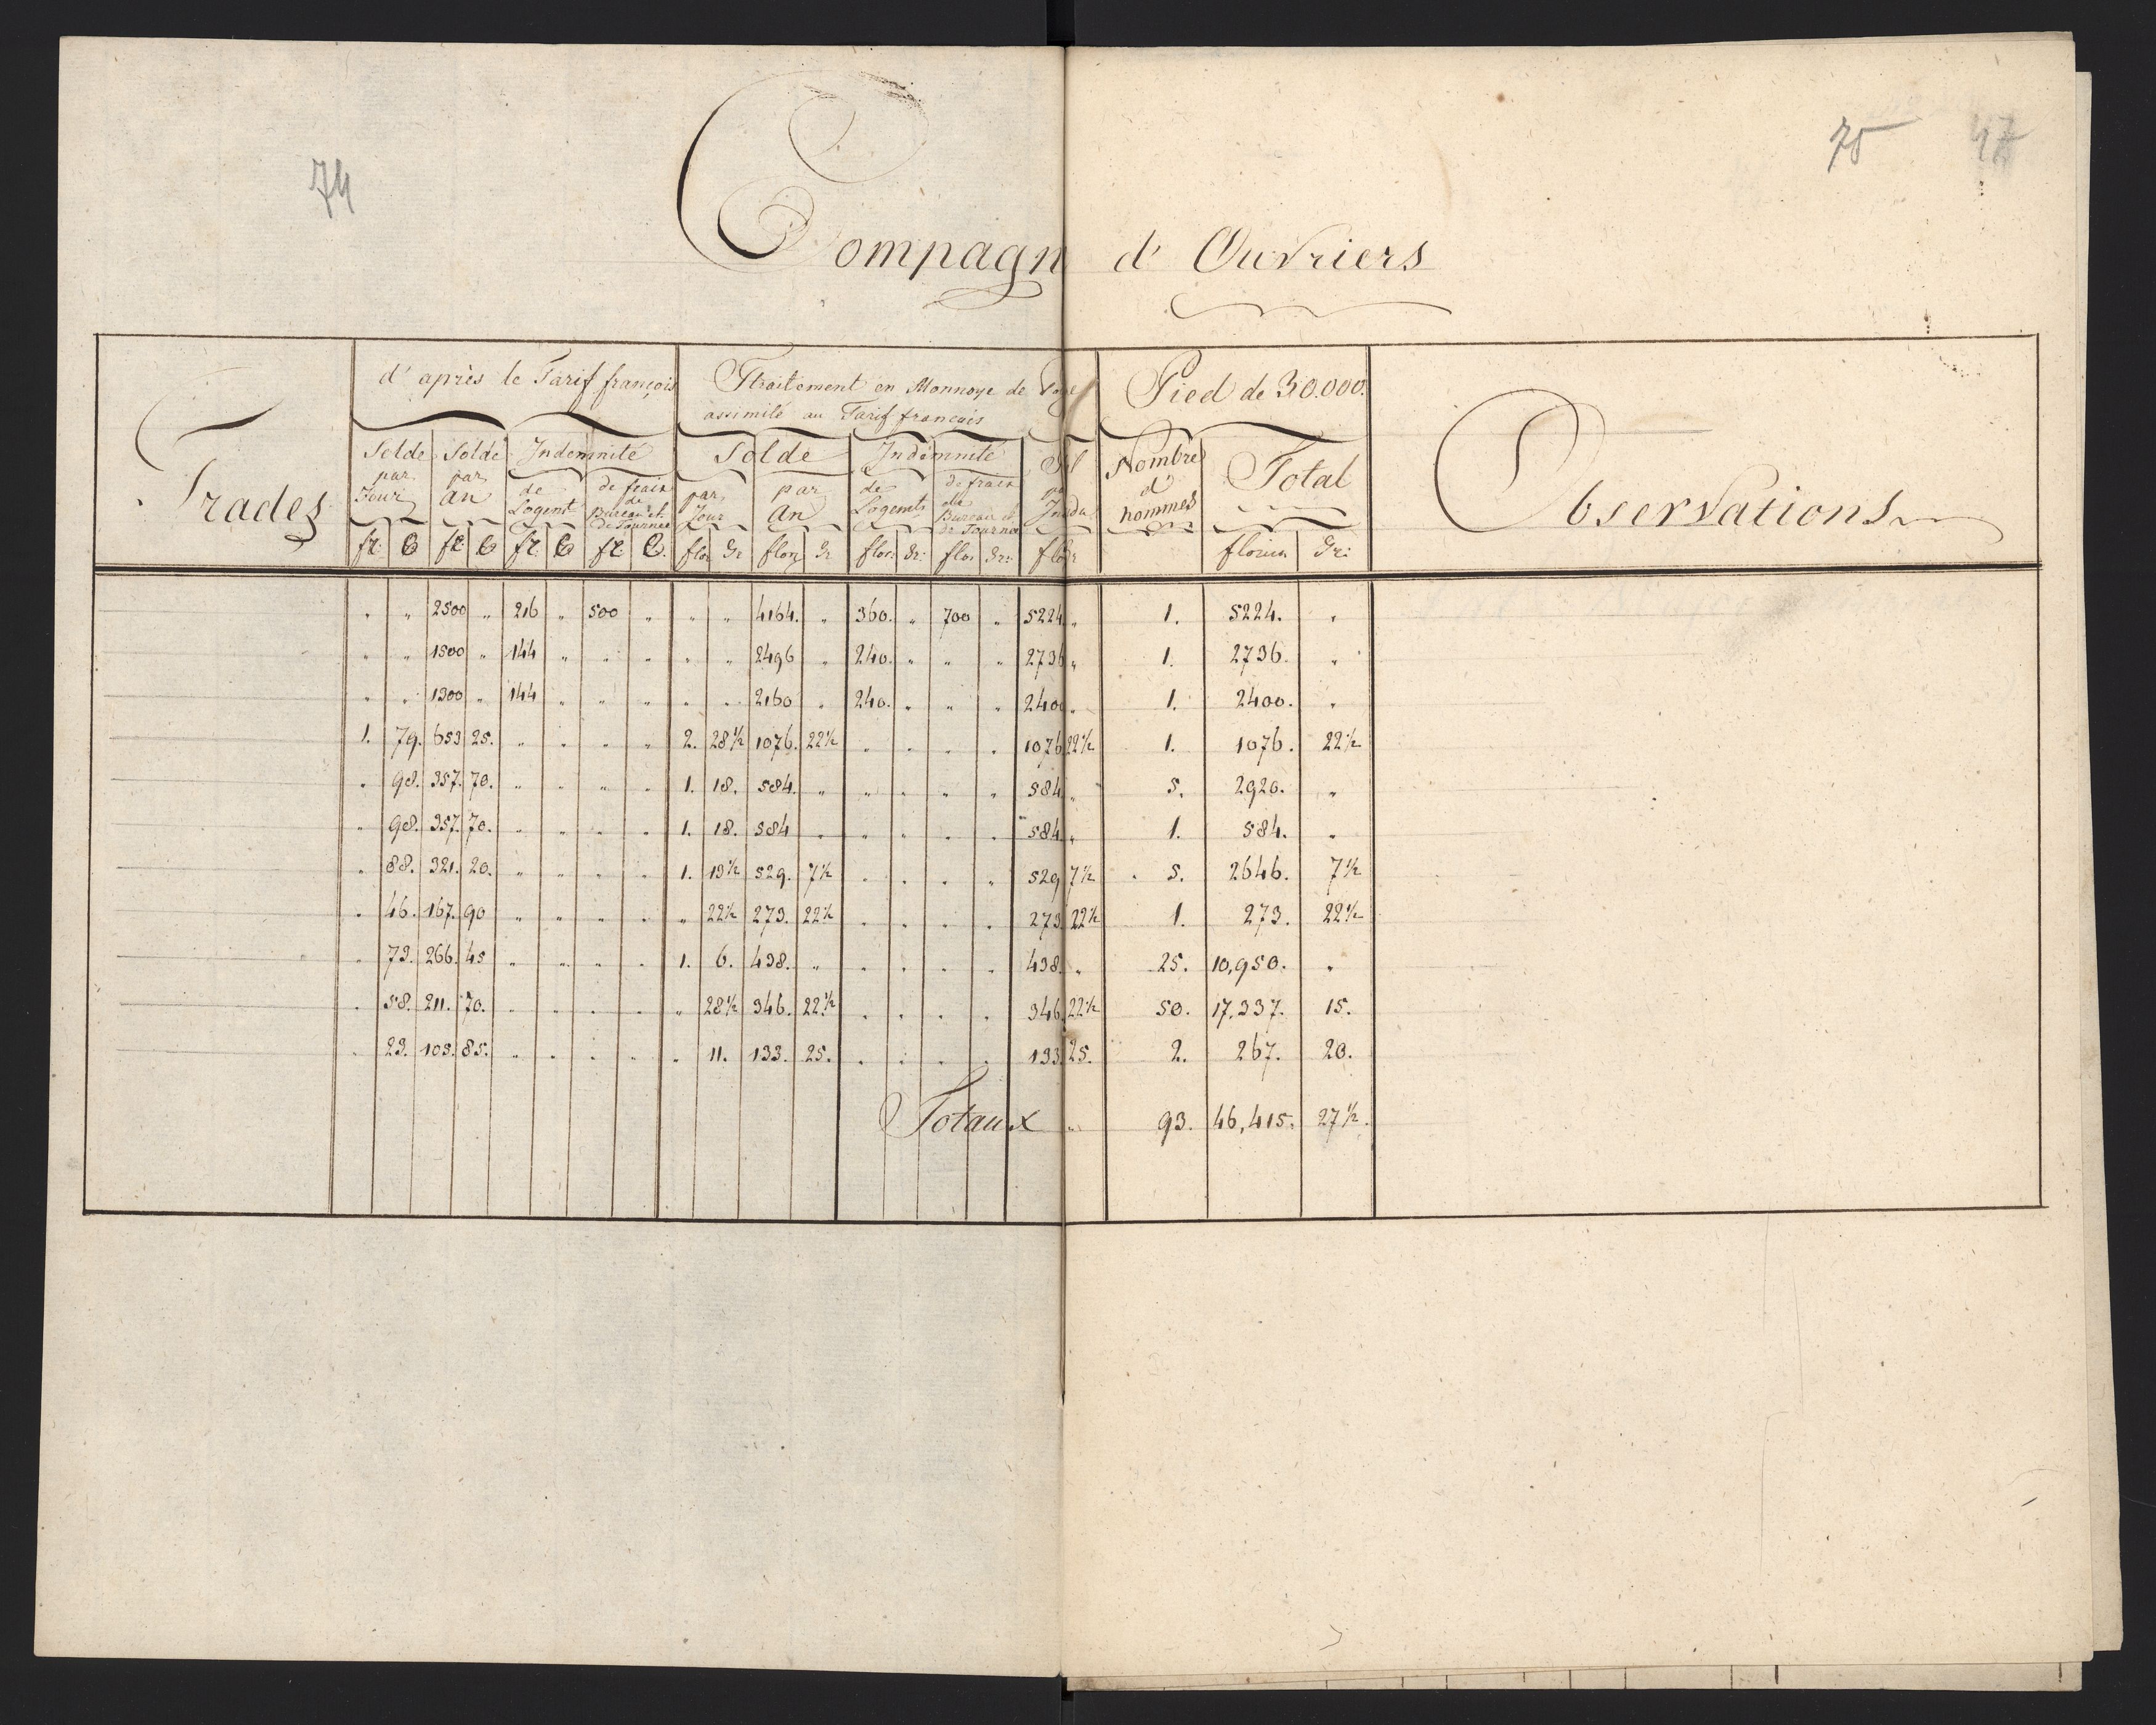 74
75
47
Compagn d' Ouvriers
Grades
d' après le Tarif françois
Traitement en Monnoye de
assimilé au Tarif françois
Pied de 30.000.
Observations
Solde par Jour | Solde par An | Indemnité de Logemt | de frais de Bureau et de Tournée | Solde par Jour | par An | Indemnité de Logemts | de frais de Bureau et de Tournée | Nombre d' hommes | Total
fr: | C | fr | C | fr: | C | fr | C. | flo | Gr | flor | Gr | flor: | Gr: | flor | Gr: | florins | Gr:
" | " | 2500 | " | 216 | " | 500 | " | " | " | 4164. | " | 360. | " | 700 | " | 5224 | " | 1. | 5224. | "
" | " | 1500 | " | 144 | " | " | " | " | " | 2496 | " | 240. | " | " | " | 2736 | " | 1. | 2736. | "
" | " | 1300 | " | 144 | " | " | " | " | " | 2160 | " | 240. | " | " | " | 2400 | " | 1. | 2400. | "
1. | 79. | 653 | 25. | " | " | " | " | 2. | 28½ | 1076. | 22½ | " | " | " | " | 1076 | 22½ | 1. | 1076. | 22½
" | 98. | 357. | 70. | " | " | " | " | 1. | 18. | 584. | " | " | " | " | " | 584 | " | 5. | 2920. | "
" | 98. | 357. | 70. | " | " | " | " | 1. | 18. | 584 | " | " | " | " | " | 584 | " | 1. | 584. | "
" | 88. | 321. | 20. | " | " | " | " | 1. | 13½ | 529. | 7½ | " | " | " | " | 529 | 7½ | 5. | 2646. | 7½
" | 46. | 167. | 90 | " | " | " | " | " | 22½ | 273. | 22½ | " | " | " | " | 273 | 22½ | 1. | 273. | 22½
" | 73. | 266. | 45 | " | " | " | " | 1. | 6. | 438. | " | " | " | " | " | 438. | " | 25. | 10,950. | "
" | 58. | 211. | 70. | " | " | " | " | " | 28½ | 346. | 22½ | " | " | " | " | 346 | 22½ | 50. | 17,337. | 15.
" | 29. | 105. | 85. | " | " | " | " | " | 11. | 133. | 25. | " | " | " | " | 133 | 25. | 2. | 267. | 20.
Totaux " | 93. | 46,415. | 27½.